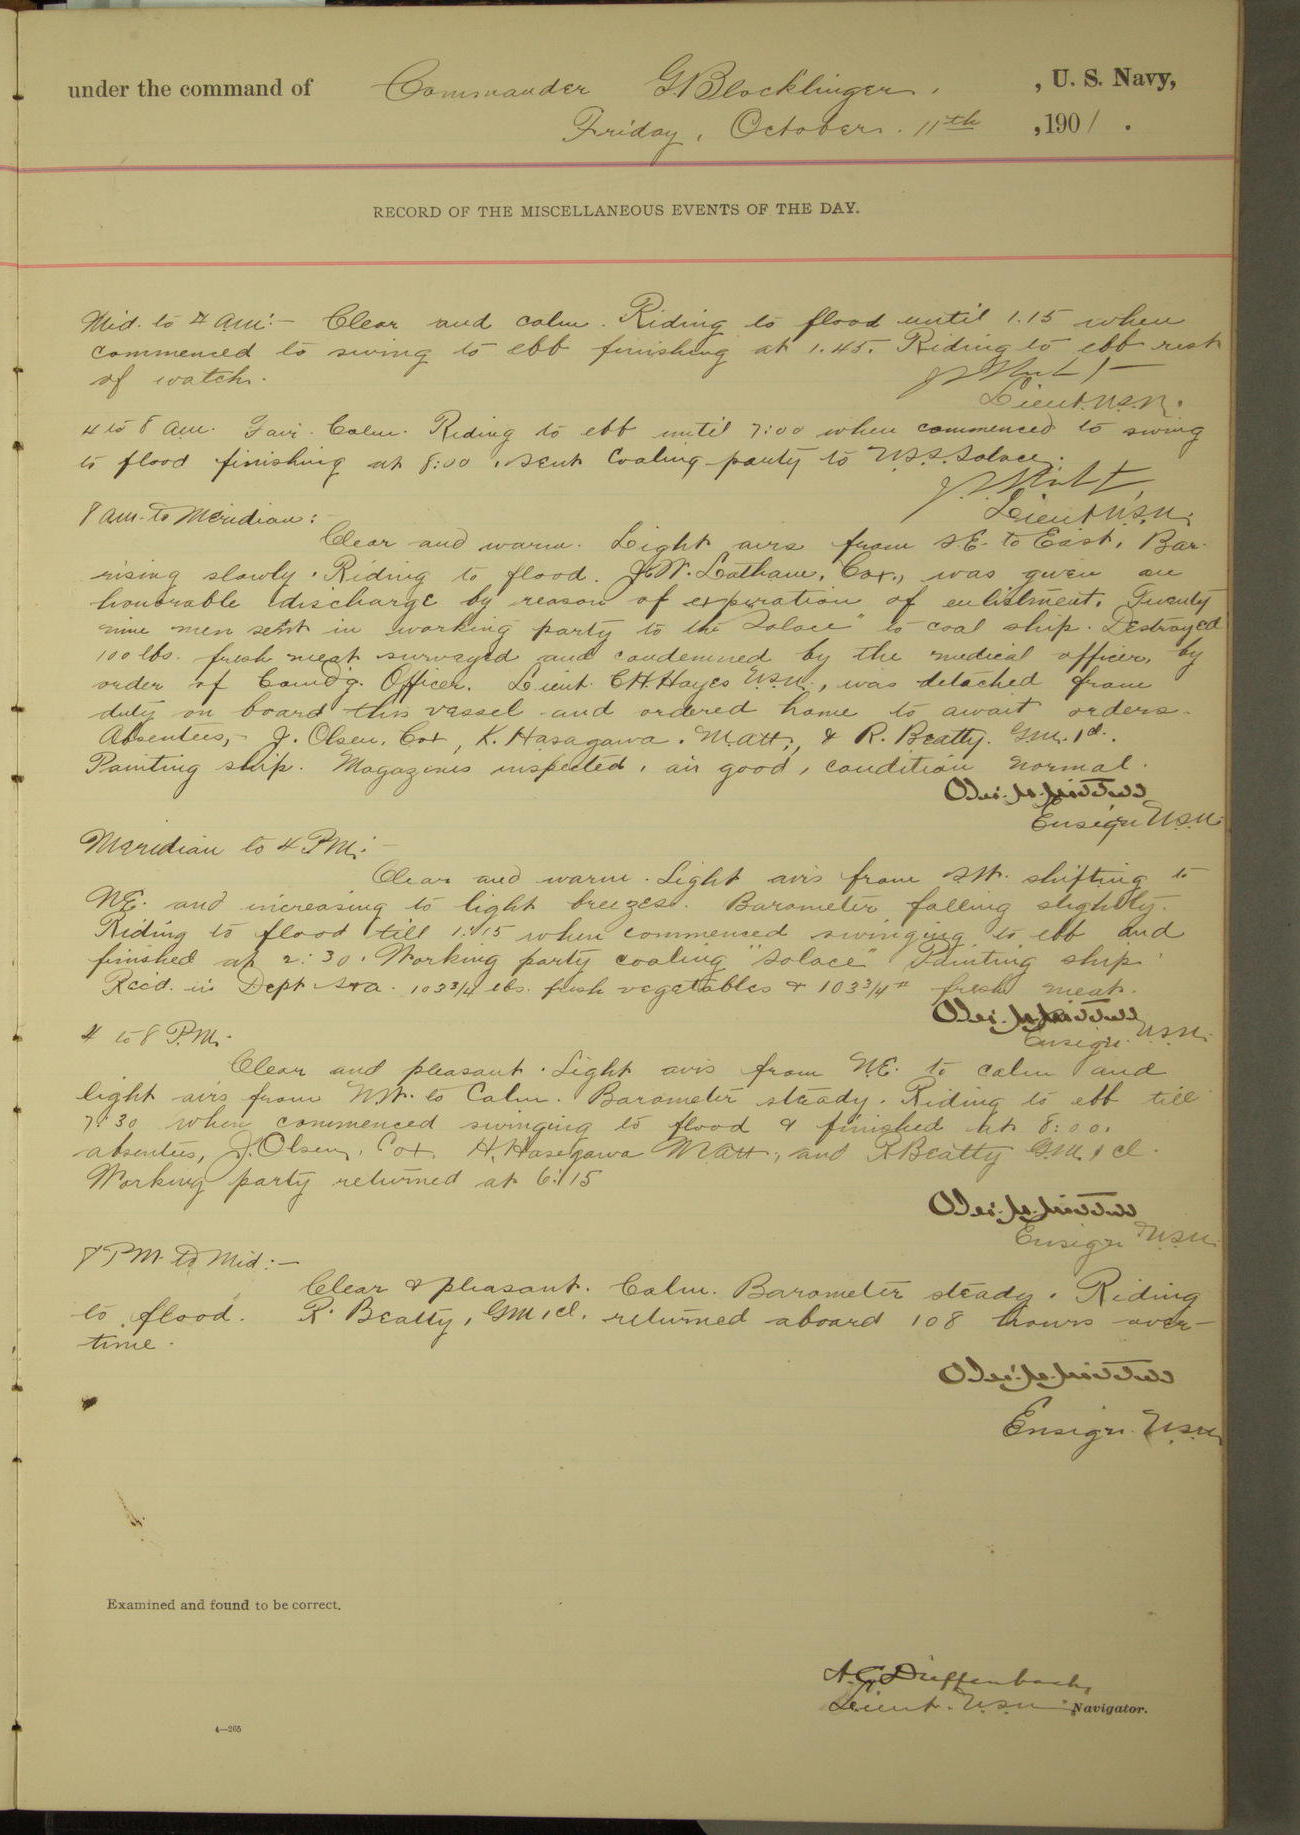 under the command of Commander G Blocklinger , U. S. Navy,
Friday, October. 11th , 1901 .
RECORD OF THE MISCELLANEOUS EVENTS OF THE DAY.
Mid. to 4 am:- Clear and calm. Riding to flood until 1.15 when
commenced to swing to ebb finishing at 1.45. Riding to ebb rest
of watch.
Lieut. U.S.N.
4 to 8 am. Fair. Calm. Riding to ebb until 7:00 when commenced to swing
to flood finishing at 8:00. Sent Coaling party to U.S.S. Solace.
Lieut U.S.N.
8 am. to Meridian:
Clear and warm. Light airs from SE. to East. Bar.
rising slowly. Riding to flood. J.W. Latham, Cox., was given an
honorable discharge by reason of expiration of enlistment. Twenty
nine men sent in working party to the "Solace" to coal ship. Destroyed
100 lbs. fresh meat surveyed and condemned by the medical officer, by
order of Comdg. Officer. Lieut. C.H. Hayes U.S.N., was detached from
duty on board this vessel and ordered home to await orders.
Absentees,- J. Olsen, Cox, K. Hasagawa. Matt., & R. Beatty. GM. 1cl.
Painting ship. Magazines inspected, air good, condition normal.
Ensign U.S.N.
Meridian to 4 P.M.:-
Clear and warm. Light airs from SW. shifting to
NE. and increasing to light breezes. Barometer falling slightly.
Riding to flood till 1:15 when commenced swinging to ebb and
finished at 2:30. Working party coaling "Solace" Painting ship.
Rec'd. in Dept 103 3/4 lbs. fresh vegetables & 103 3/4 # fresh meat.
Ensign U.S.N.
4 to 8 P.M.
Clear and pleasant. Light airs from NE. to calm and
light airs from NW. to Calm. Barometer steady. Riding to ebb till
7:30 when commenced swinging to flood & finished at 8:00.
absentees, J. Olsen, Cox, H. Hasegawa Matt., and R Beatty G.M. 1 cl.
Working party returned at 6:15
Ensign U.S.N.
8 P.M. to Mid:-
Clear & pleasant. Calm. Barometer steady. Riding
to flood. R. Beatty, GM 1cl. returned aboard 108 hours over-
time.
Ensign U.S.N.
Examined and found to be correct.
A.C. Dieffenbach,
Lieut. U.S.N. Navigator.
4—265